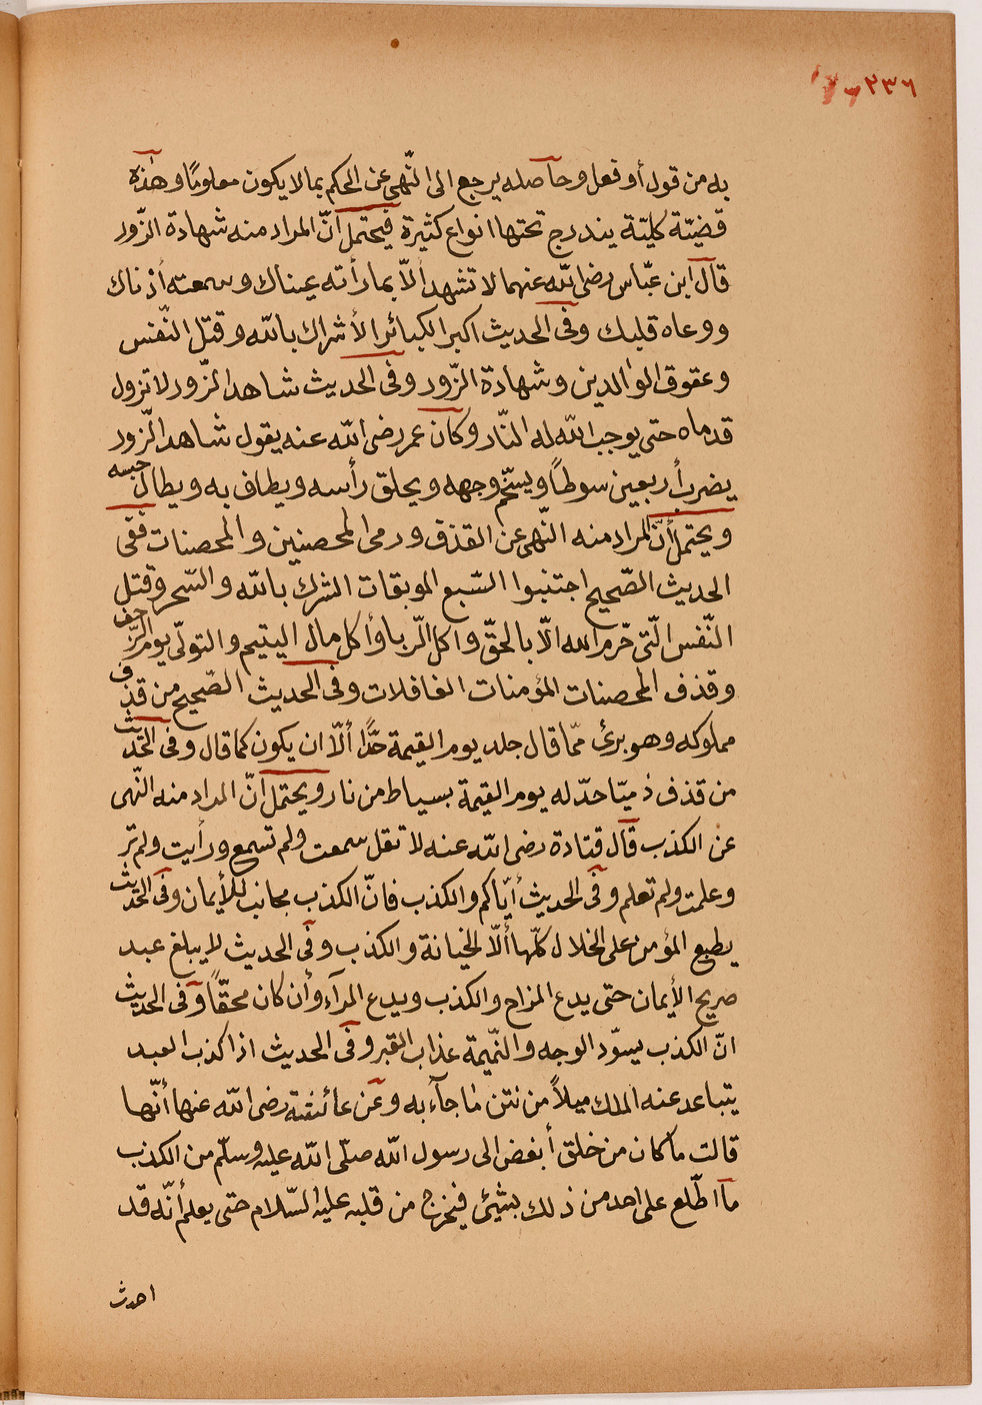 ٢٣٦
به من قول أو فعل وحاصله يرجع الى النّهى عن الحكم بما لا يكون معلومًا وهذه
قضيّة كليّة يندرج تحتها انواع كثيرة فيحتمل انّ المراد منه شهادة الزّور
قال ابن عبّاس رضى الله عنهما لا تشهد ألّا بما رأته عيناك وسمعته أذناك
ووعاه قلبك وفى الحديث اكبر الكبائر الأشراك بالله وقتل النّفس
وعقوق الوالدين وشهادة الزّور وفى الحديث شاهد الزّور لا تزول
قدماه حتى يوجب الله له النّار وكان عمر رضى الله عنه يقول شاهد الزّور
يضرب أربعين سوطاً ويسخّم وجهه ويحلق رأسه ويطاف به ويطال حبسه
ويحتمل أنّ المراد منه النّهى عن القذف ورمى المحصنين والمحصنات ففى
الحديث الصّحيح اجتنبوا السّبع الموبقات الشرك بالله والسّحر وقتل
النّفس الّتى حرّم الله الّا بالحقّ واكل الرّبا وأكل مال اليتيم والتولّى يوم الزّحف
وقذف المحصنات المؤمنات الغافلات وفى الحديث الصّحيح من قذف
مملوكه وهو برئ ممّا قال جلد يوم القيمة حدًّا ألّا ان يكون كما قال وفى الحديث
من قذف ذميّا حدّ له يوم القيمة بسياط من نار ويحتمل انّ المراد منه النّهى
عن الكذب قال قتادة رضى الله عنه لا تقل سمعت ولم تسمع ورأيت ولم تر
وعلمت ولم تعلم وفى الحديث أيّاكم والكذب فانّ الكذب مجانب للأيمان وفى الحديث
يطبع المؤمن على الخلال كلّها ألّا الخيانة والكذب وفى الحديث لا يبلغ عبد
صريح الأيمان حتى يدع المزاح والكذب ويدع المرآء وأن كان محقّاً وفى الحديث
انّ الكذب يسوّد الوجه والنّميمة عذاب القبر وفى الحديث اذا كذب العبد
يتباعد عنه الملك ميلاً من نتن ما جآء به وعن عائشة رضى الله عنها أنّها
قالت ما كان من خلق أبغض الى رسول الله صلّى الله عليه وسلّم من الكذب
ما اطّلع على احد من ذلك بشيئ فيخرج من قلبه عليه السّلام حتى يعلم أنّه قد
احدث